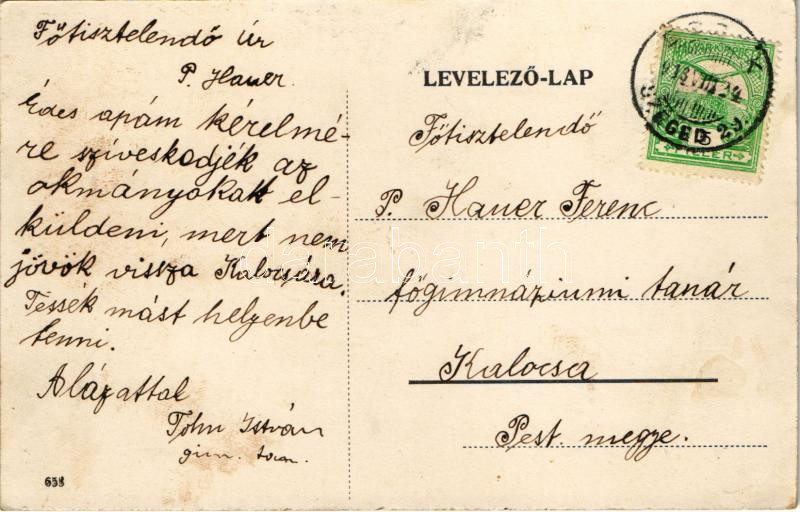 Főtisztelendő Úr
P. Hauer
Édes apám kérelmé-
re sziveskedjék az
okmányokat el-
küldeni, mert nem
jövök vissza Kalocsára.
Tessék mást helyembe
tenni.
Alázattal
István
gim. tan.
653
LEVELEZŐ-LAP
Főtisztelendő
P. Hauer Ferenc
főgimnáziumi tanár
Kalocsa
Pest. megye.
MAGYAR KIR. POSTA
SZEGED 2
5
FILLÉR
darabanth